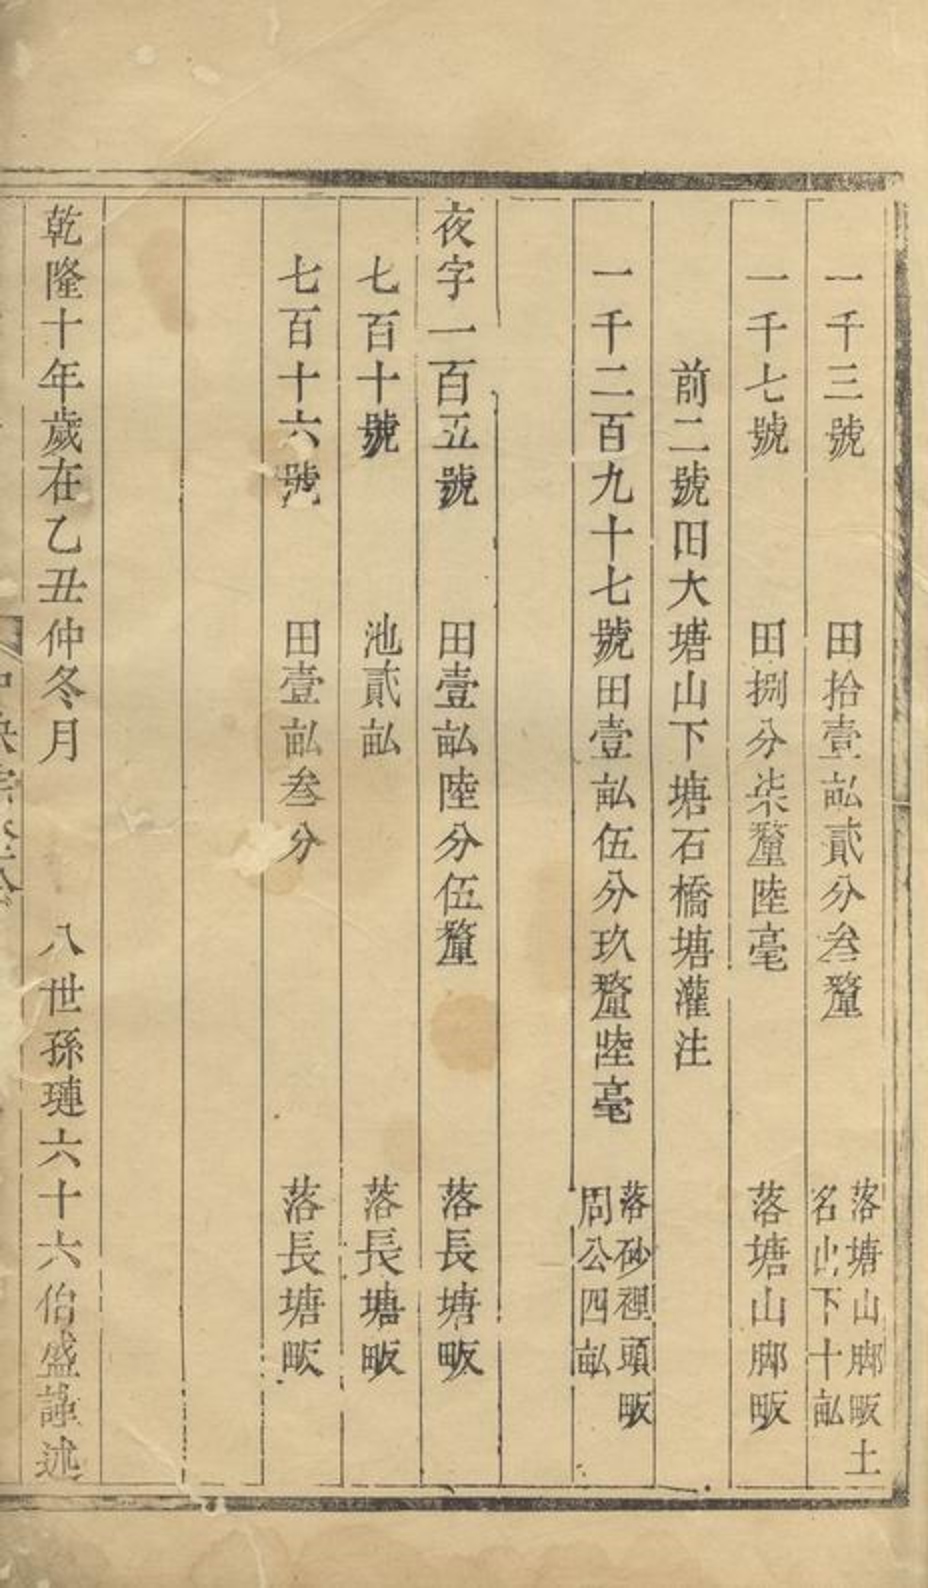 一千三號 田拾壹畝貳分叁釐 落塘山脚畈土名山下十畝
一千七號 田捌分柒釐陸毫 落塘山脚畈
前二號田大塘山下塘石橋塘灌注
一千二百九十七號田壹畝伍分玖釐陸毫 落砂裡頭畈周公四畝
夜字一百五號 田壹畝陸分伍釐 落長塘畈
七百十號 池貳畝 落長塘畈
七百十六號 田壹畝叁分 落長塘畈
乾隆十年歲在乙丑仲冬月 八世孫璉六十六伯盛謹述